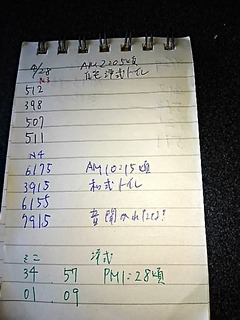 9/28 AM2:05頃
N3 自宅洋式トイレ
512
398
507
511
N4
6175 AM10:15頃
3915 和式トイレ
6155
7915
ミニ 洋式
34 57 PM1:28頃
01 09